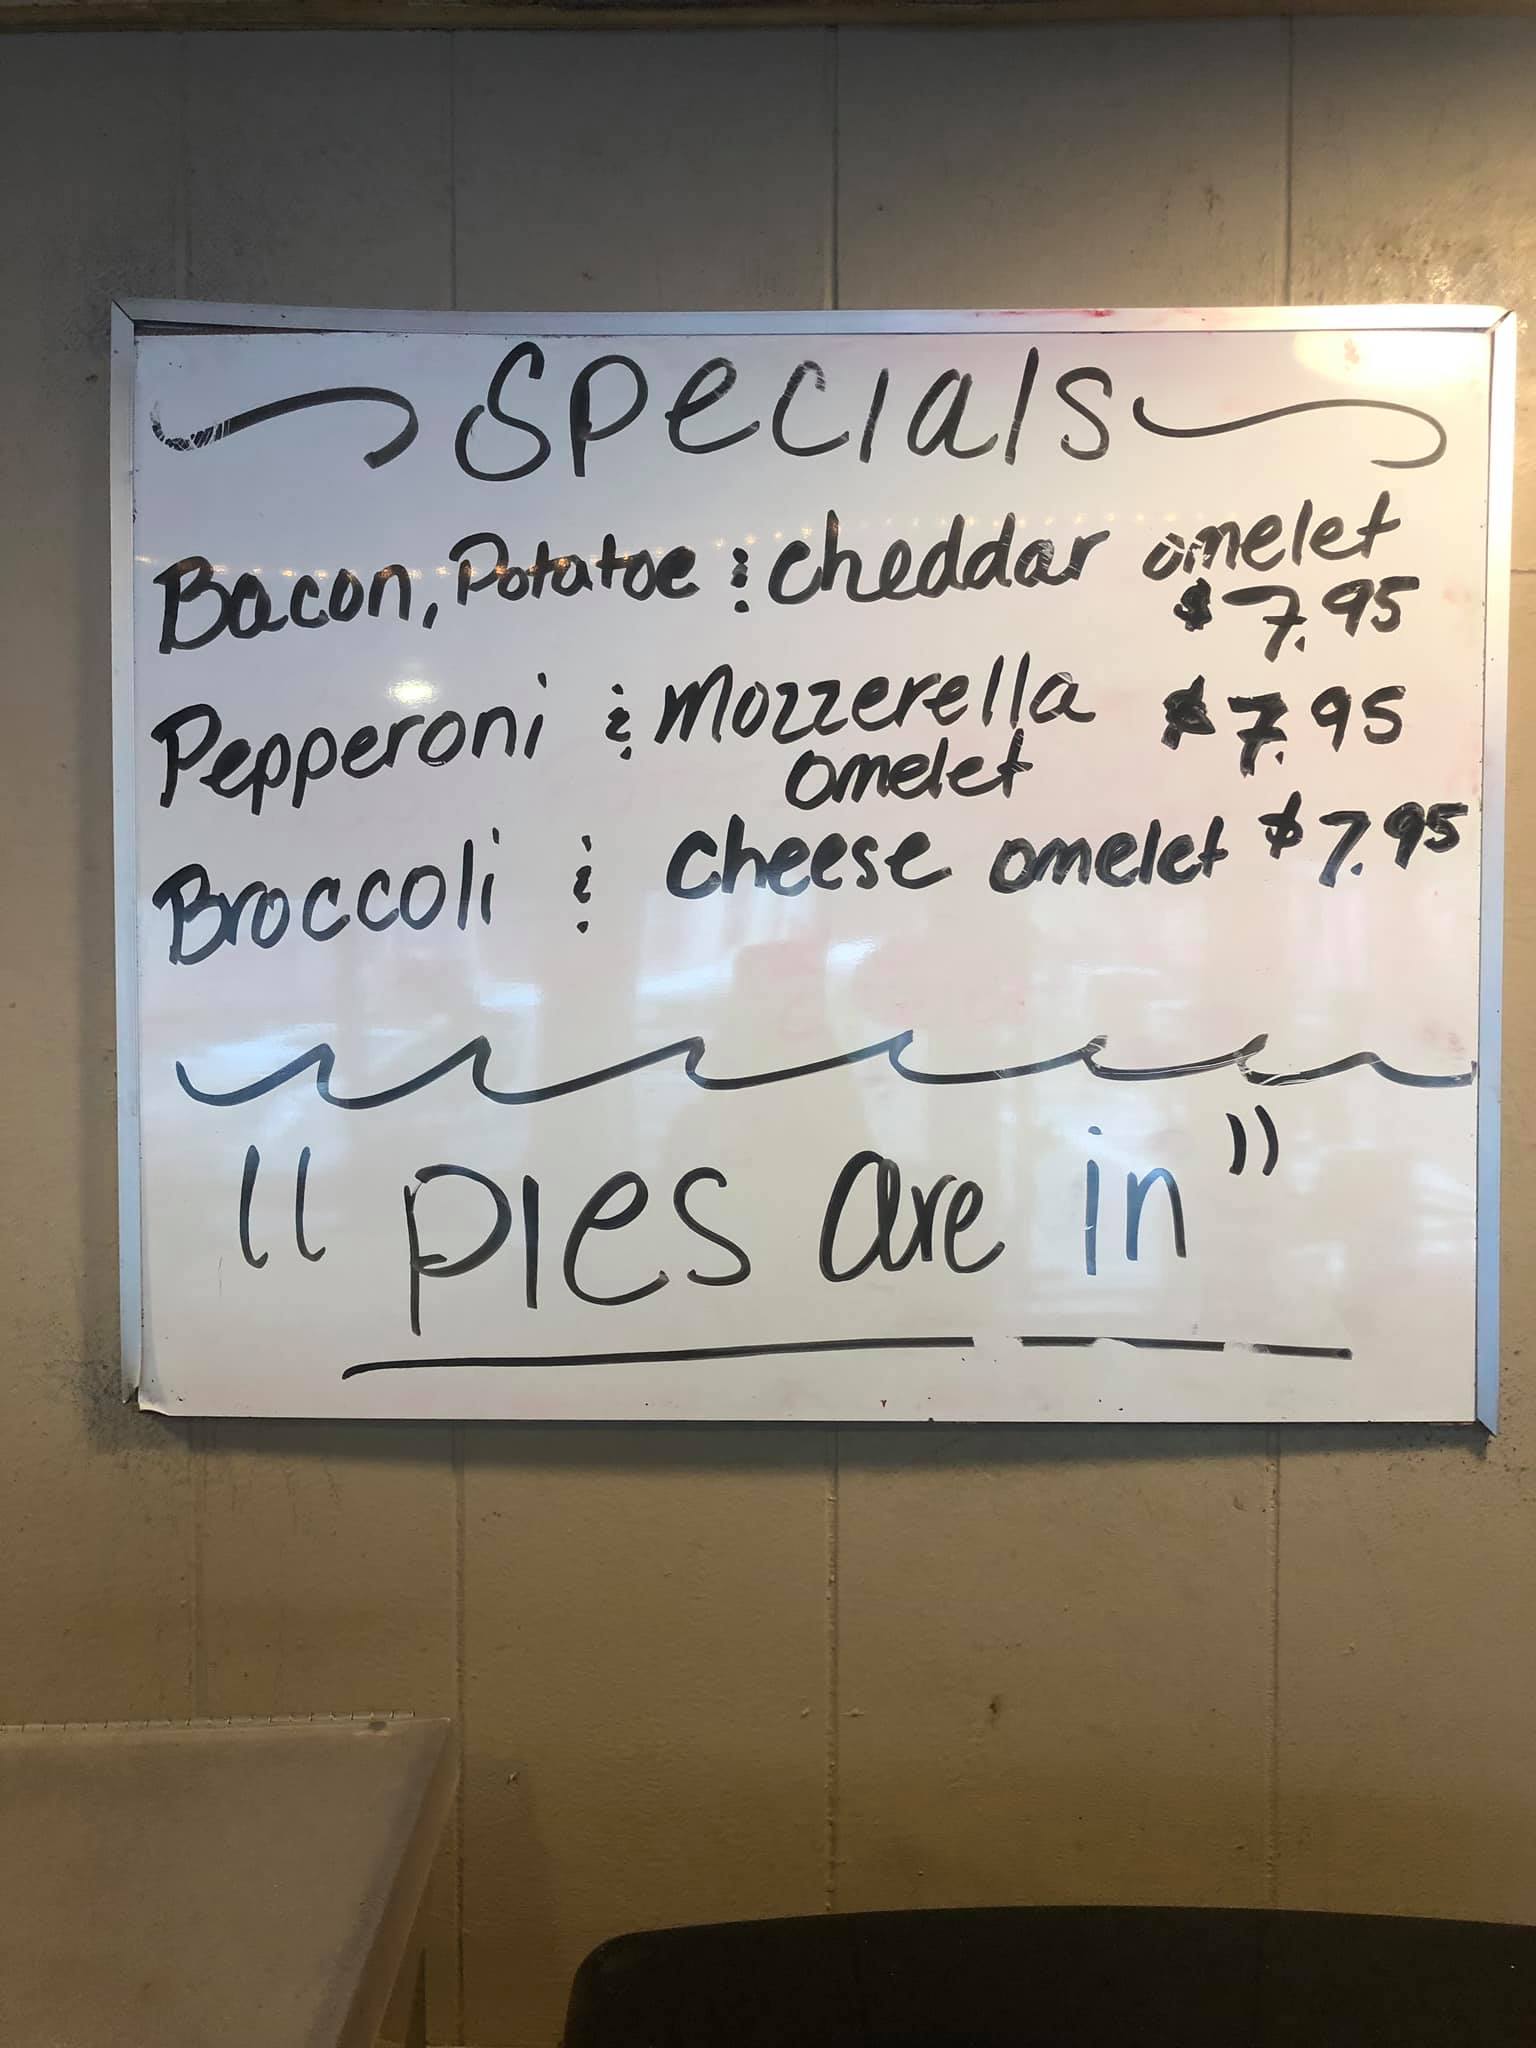 Specials
Bacon, Potatoe & Cheddar omelet
$7.95
Pepperoni & Mozzerella $7.95
omelet
Broccoli & Cheese omelet $7.95
"Pies are in"